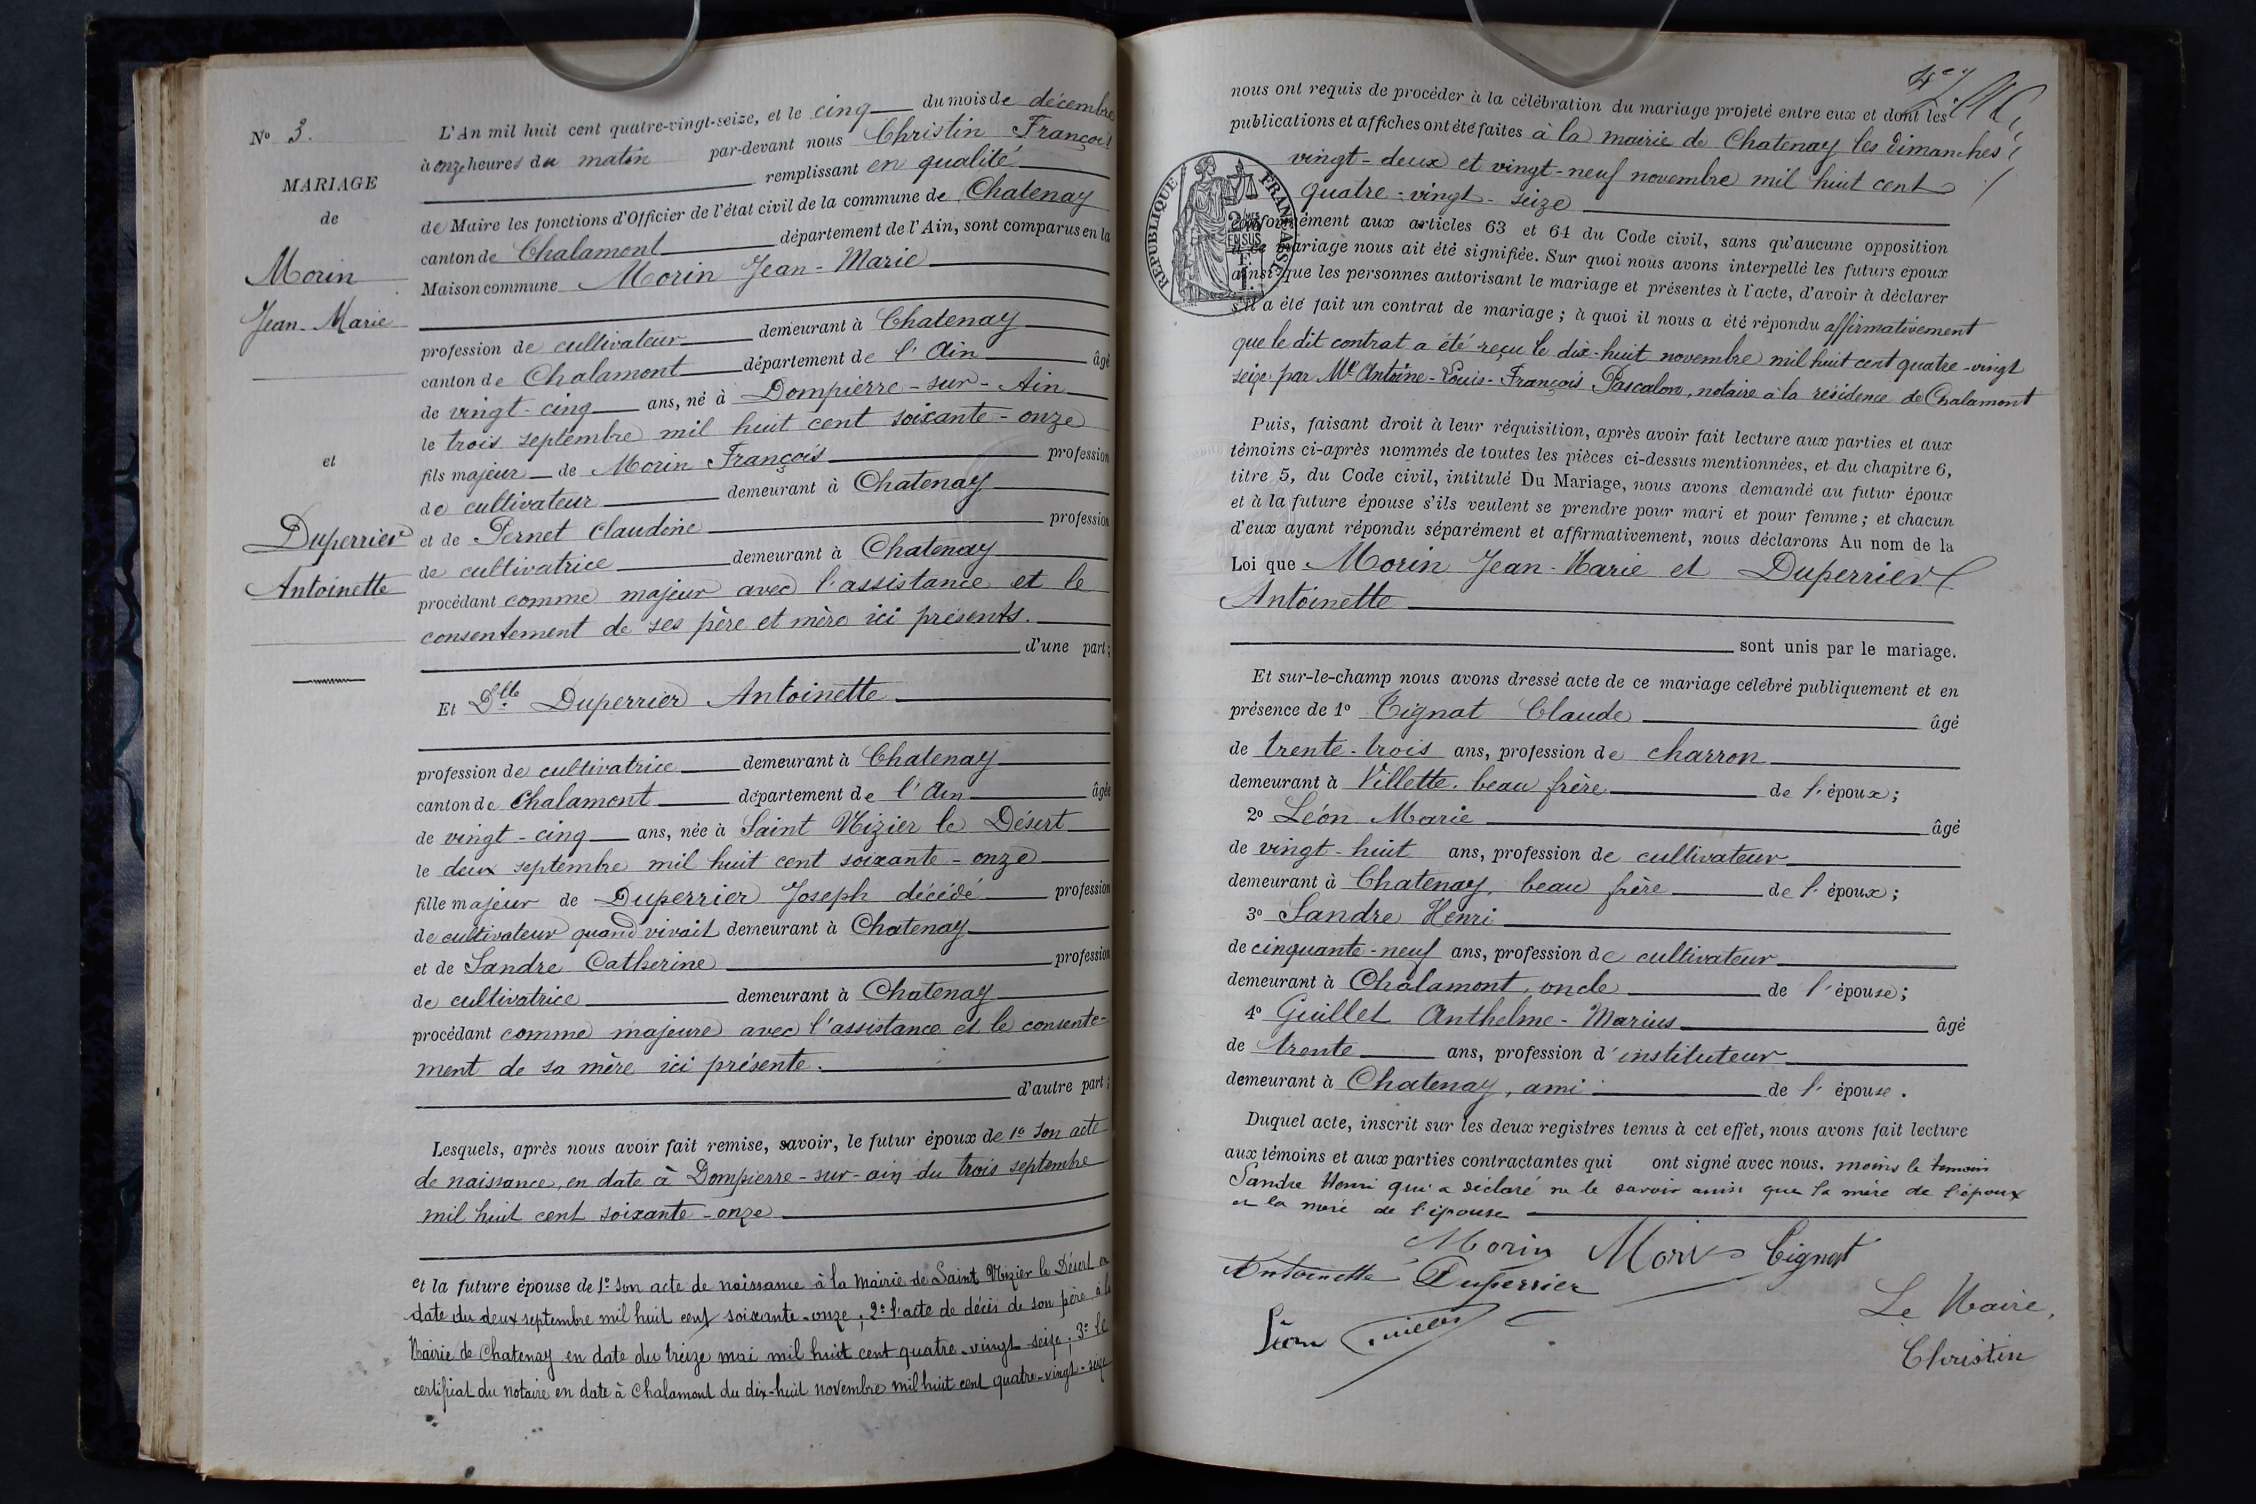 N° 3.
MARIAGE
de
Morin
Jean-Marie
et
Duperrier
Antoinette
L'An mil huit cent quatre-vingt-seize, et le cinq du mois de décembre
à onze heures du matin par-devant nous Christin François
remplissant en qualité
de Maire les fonctions d'Officier de l'état civil de la commune de Chatenay
canton de Chalamont département de l'Ain, sont comparus en la
Maison commune Morin Jean-Marie
profession de cultivateur demeurant à Chatenay
canton de Chalamont département de l'Ain âgé
de vingt-cinq ans, né à Dompierre-sur-Ain
le trois septembre mil huit cent soixante-onze
fils majeur de Morin François profession
de cultivateur demeurant à Chatenay
et de Pernet Claudine profession
de cultivatrice demeurant à Chatenay
procédant comme majeur avec l'assistance et le
consentement de ses père et mère ici présents.
d'une part;
Et Dlle Duperrier Antoinette
profession de cultivatrice demeurant à Chatenay
canton de Chalamont département de l'Ain âgée
de vingt-cinq ans, née à Saint Nizier le Désert
le deux septembre mil huit cent soixante-onze
fille majeur de Duperrier Joseph décédé profession
de cultivateur quand vivait demeurant à Chatenay
et de Sandre Catherine profession
de cultivatrice demeurant à Chatenay
procédant comme majeure avec l'assistance et le consente-
ment de sa mère ici présente.
d'autre part;
Lesquels, après nous avoir fait remise, savoir, le futur époux de 1° son acte
de naissance, en date à Dompierre-sur-ain du trois septembre
mil huit cent soixante-onze
et la future épouse de 1° son acte de naissance à la Mairie de Saint Nizier le Désert en
date du deux septembre mil huit cent soixante-onze; 2° l'acte de décès de son père à la
Mairie de Chatenay en date du treize mai mil huit cent quatre-vingt-seize; 3° le
certificat du notaire en date à Chalamont du dix-huit novembre mil huit cent quatre-vingt-seize
nous ont requis de procéder à la célébration du mariage projeté entre eux et dont les
publications et affiches ont été faites à la mairie de Chatenay les dimanches
vingt-deux et vingt-neuf novembre mil huit cent
quatre-vingt-seize
RÉPUBLIQUE FRANÇAISE
conformément aux articles 63 et 64 du Code civil, sans qu'aucune opposition
à ce mariage nous ait été signifiée. Sur quoi nous avons interpellé les futurs époux
ainsi que les personnes autorisant le mariage et présentes à l'acte, d'avoir à déclarer
s'il a été fait un contrat de mariage; à quoi il nous a été répondu affirmativement
que le dit contrat a été reçu le dix-huit novembre mil huit cent quatre-vingt
seize par Me Antoine-Louis-François Pascalon, notaire à la résidence de Chalamont
Puis, faisant droit à leur réquisition, après avoir fait lecture aux parties et aux
témoins ci-après nommés de toutes les pièces ci-dessus mentionnées, et du chapitre 6,
titre 5, du Code civil, intitulé Du Mariage, nous avons demandé au futur époux
et à la future épouse s'ils veulent se prendre pour mari et pour femme; et chacun
d'eux ayant répondu séparément et affirmativement, nous déclarons Au nom de la
Loi que Morin Jean-Marie et Duperrier
Antoinette
sont unis par le mariage.
Et sur-le-champ nous avons dressé acte de ce mariage célébré publiquement et en
présence de 1° Tignat Claude âgé
de trente-trois ans, profession de charron
demeurant à Villette. beau frère de l'époux;
2° Léon Marie âgé
de vingt-huit ans, profession de cultivateur
demeurant à Chatenay, beau frère de l'époux;
3° Sandre Henri
de cinquante-neuf ans, profession de cultivateur
demeurant à Chalamont, oncle de l'épouse;
4° Guillet Anthelme-Marius âgé
de trente ans, profession d'instituteur
demeurant à Chatenay, ami de l'épouse.
Duquel acte, inscrit sur les deux registres tenus à cet effet, nous avons fait lecture
aux témoins et aux parties contractantes qui ont signé avec nous. moins le témoin
Sandre Henri qui a déclaré ne le savoir ainsi que la mère de l'époux
et la mère de l'épouse
Morin Morin Tignat
Antoinette Duperrier
Léon Guillet
Le Maire,
Christin